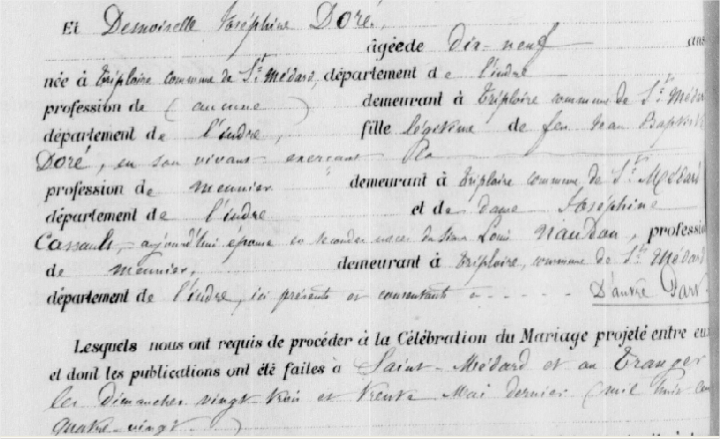 Et Demoiselle Joséphine Doré,
âgée de dix-neuf ans
née à Triploire commune de St Médard, département de l'indre
profession de (aucune) demeurant à Triploire commune de St Médard
département de l'indre, fille légitime de feu Jean Baptiste
Doré, en son vivant exerçant la
profession de meunier demeurant à Triploire commune de St Médard
département de l'indre et de dame Joséphine
Cassault, aujourd'hui épouse en secondes noces du sieur Louis Naudan, profession
de meunier, demeurant à Triploire, commune de St Médard
département de l'indre, ici présents et consentants D'autre Part
Lesquels nous ont requis de procéder à la Célébration du Mariage projeté entre eux
et dont les publications ont été faites à Saint-Médard et au Tranger
les Dimanches vingt trois et trente Mai dernier (mil huit cent
quatre-vingt)